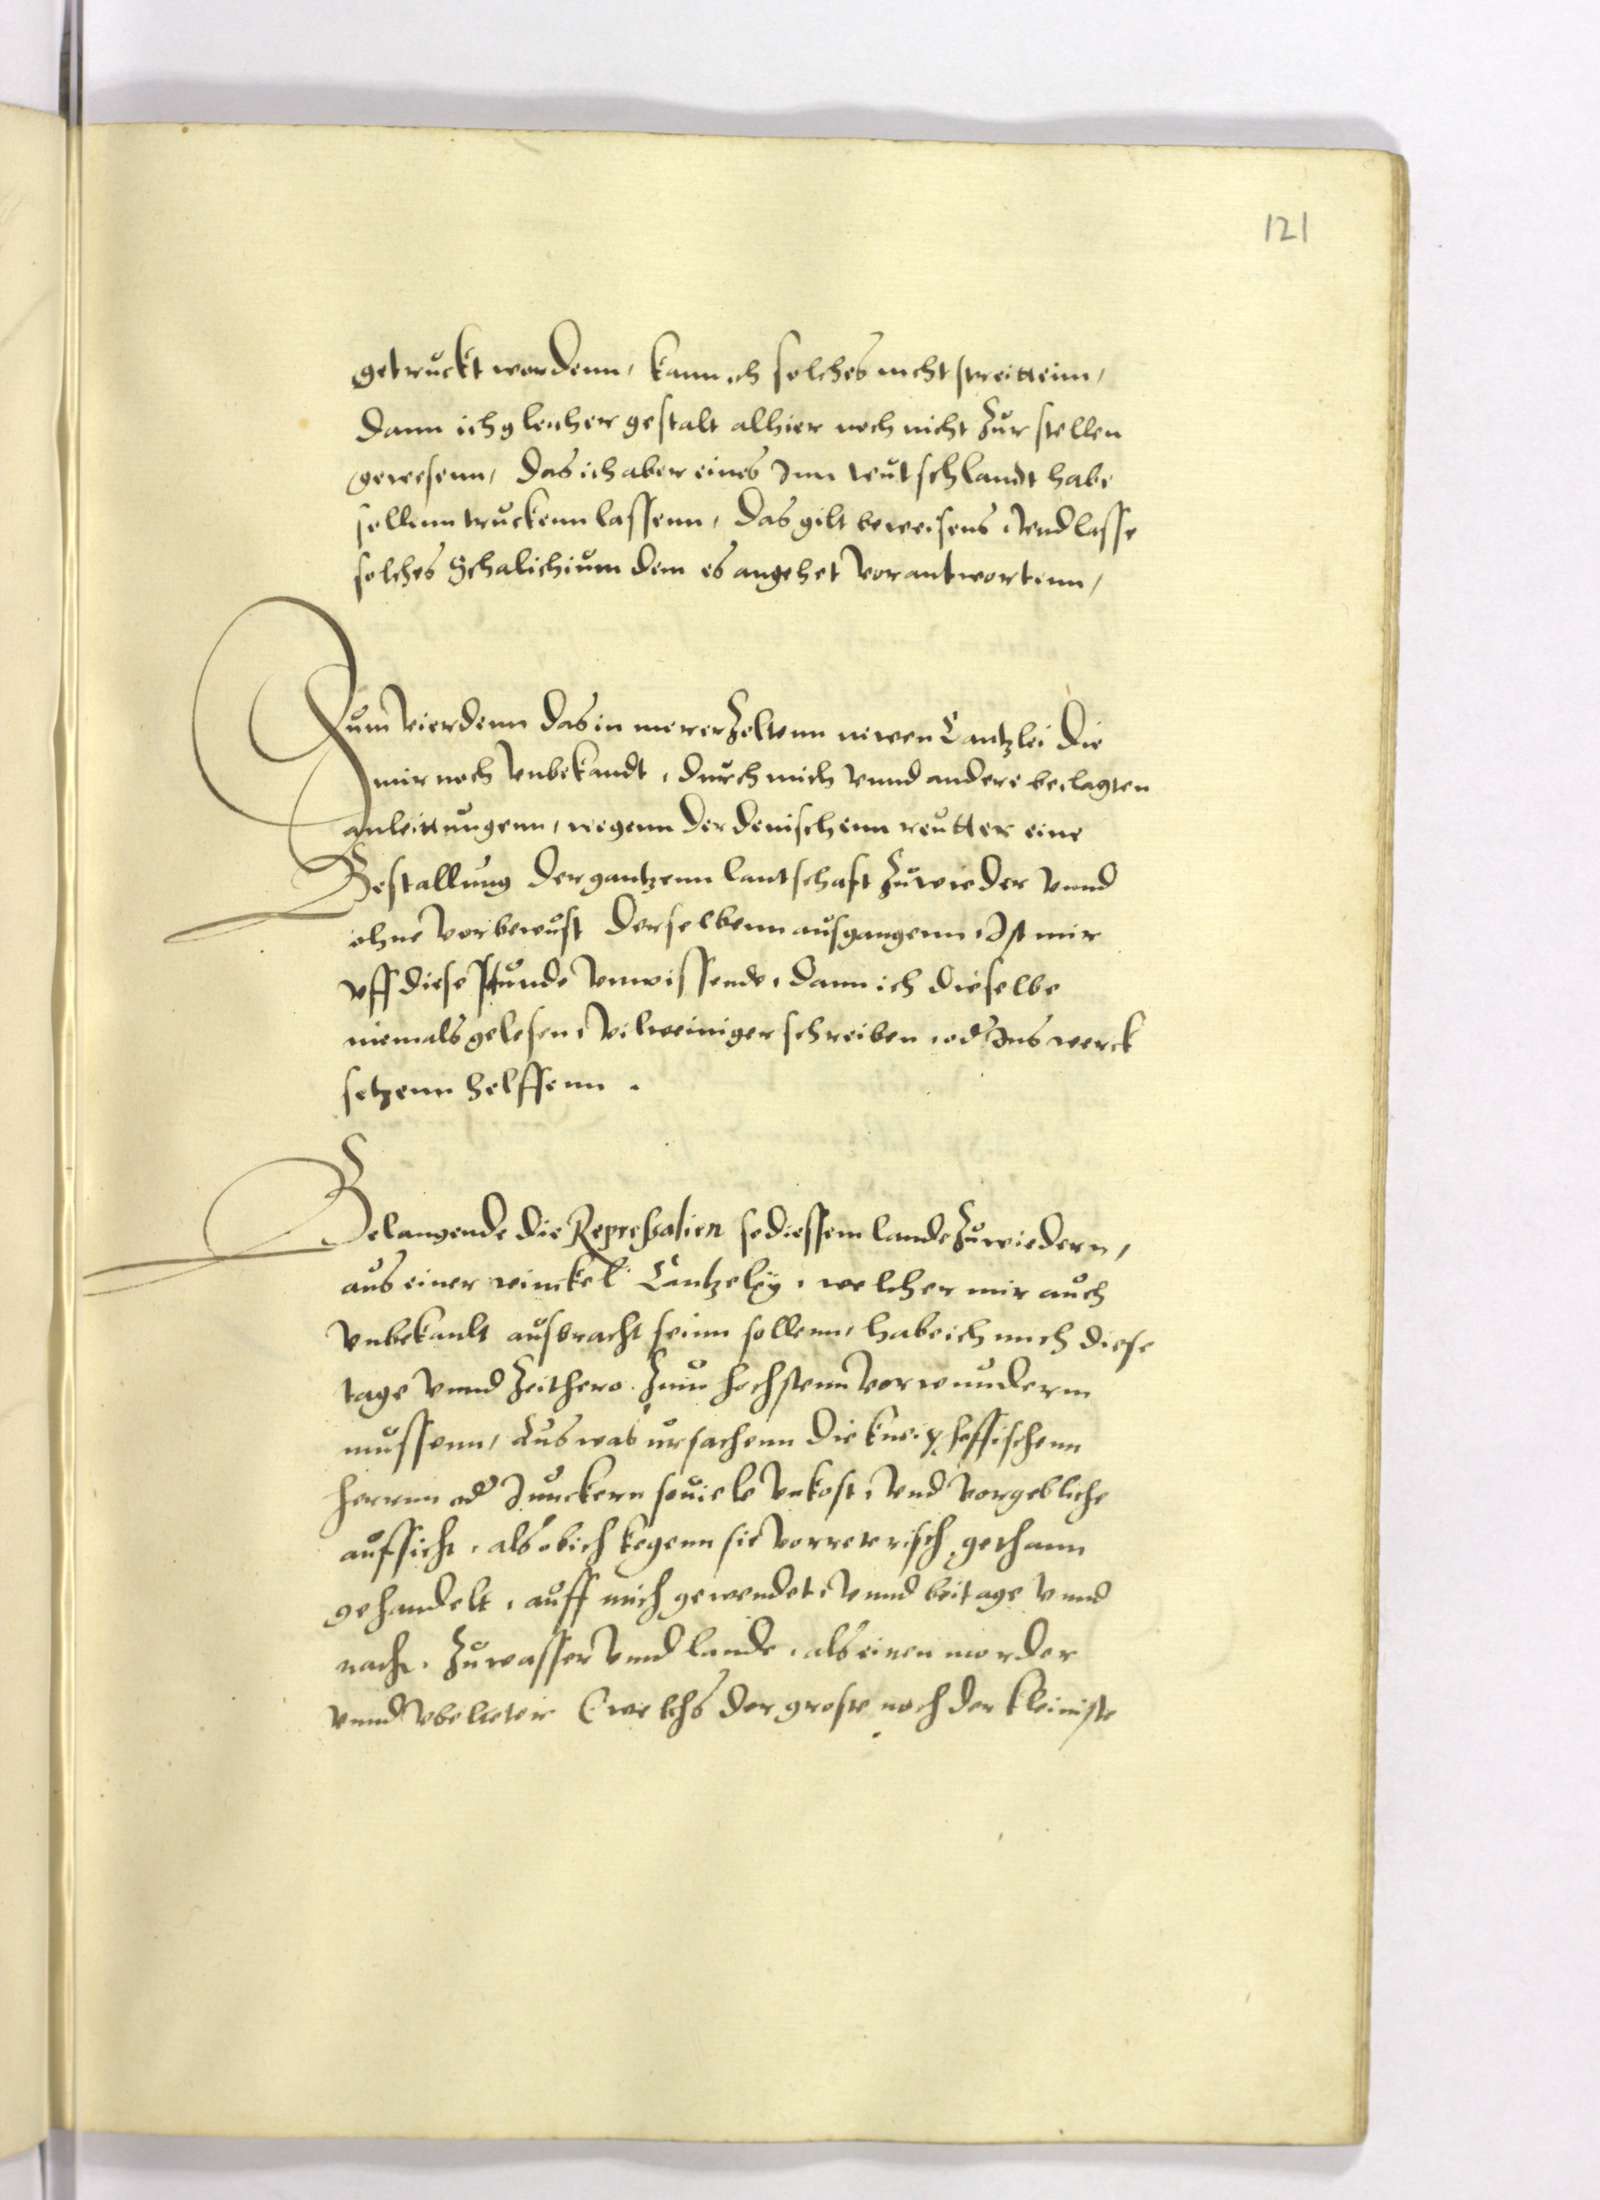 121
getruckt wordenn, kann ich solches nicht streittenn,
Dann ich gleicher gestalt alhier noch nicht zur stellen
gewesenn, das ich aber eines Inn teutschlandt habe
sollenn truckenn lassenn, das gilt beweisens, Vnd lasse
solches Schalichium dem es angehet vorantwortenn,
Zum Vierdenn das in mererzeltenn newen Cantzlei die
mir noch vnbekandt, durch mich vnnd andere beclagten
anleittungenn, wegenn der denischenn reutter eine
Bestallung der gantzenn lantschaft zuwieder vnnd
ohne vorbewust derselbenn ausgangenn, Ist mir
vff diese stunde vnwissende, dann ich dieselbe
niemals gelesen, vilweiniger schreiben, od Ins werck
setzenn helffenn.
Belangende die Repressalien so diessem lande zuwiedern,
aus einer winckel Cantzeley, welcher mir auch
vnbekant ausbracht seinn sollenn, habe ich mich diese
tage vnnd zeithero zum hochstenn vorwundernn
mussenn, Aus was ursachenn die kneiphoffischenn
herrnn od Junckern souiele vnkost, vnd vorgebliche
aufsicht, als ob ich kegenn sie vorreterisch gethann
gehandelt, auff mich gewendet, vnnd bei tage vnnd
nacht, zu wasser vnnd lande, als einen morder
vnnd vbelteter (welchs der groste noch der kleiniste